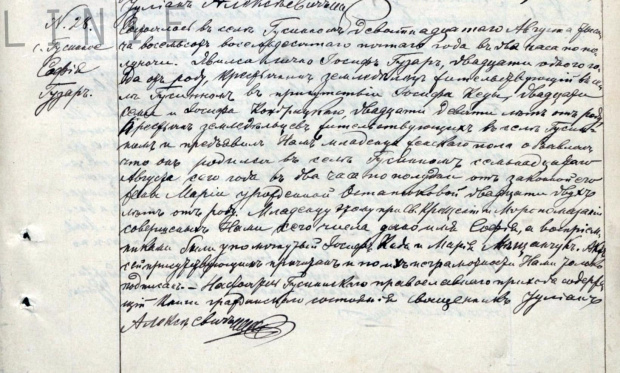 LINE
Юліанъ Алексѣевичъ
N. 28.
с. Гусинное
Софія
Гузаръ.
Состоялось въ селѣ Гусинномъ девятнадцатаго Августа тыся-
ча восемьсотъ восемьдесятъ пятаго года въ два часа по по-
лудни. Явился лично Іосифъ Гузаръ, двадцати одного го-
да отъ роду, крестьянинъ земледѣлецъ жительствующій въ се-
лѣ Гусинномъ въ присутствіи Іосифа Кеди, двадцати
семи и Іосифа двадцати девяти лѣтъ отъ роду
крестьянъ земледѣльцевъ жительствующихъ въ селѣ Гусин-
номъ и предъявилъ Намъ младенца женскаго пола объявляя
что онъ родился въ селѣ Гусинномъ семнадцатаго
Августа сего года въ два часа по полудни отъ законной его
жены Маріи урожденной Остапковой двадцати двухъ
лѣтъ отъ роду. Младенцу этому при Св. Крещеніи и Мѵропомазаніи
совершенныхъ Нами сего числа дано имя Софія, а воспріем-
никами были упомянутый Іосифъ Кедь и Марія Актъ
сей присутствующимъ прочитанъ и по ихъ неграмотности Нами только
подписанъ. – Настоятель Гусинскаго православнаго прихода содержа-
щій Акты гражданскаго состоянія священникъ Юліанъ
Алексѣевичъ